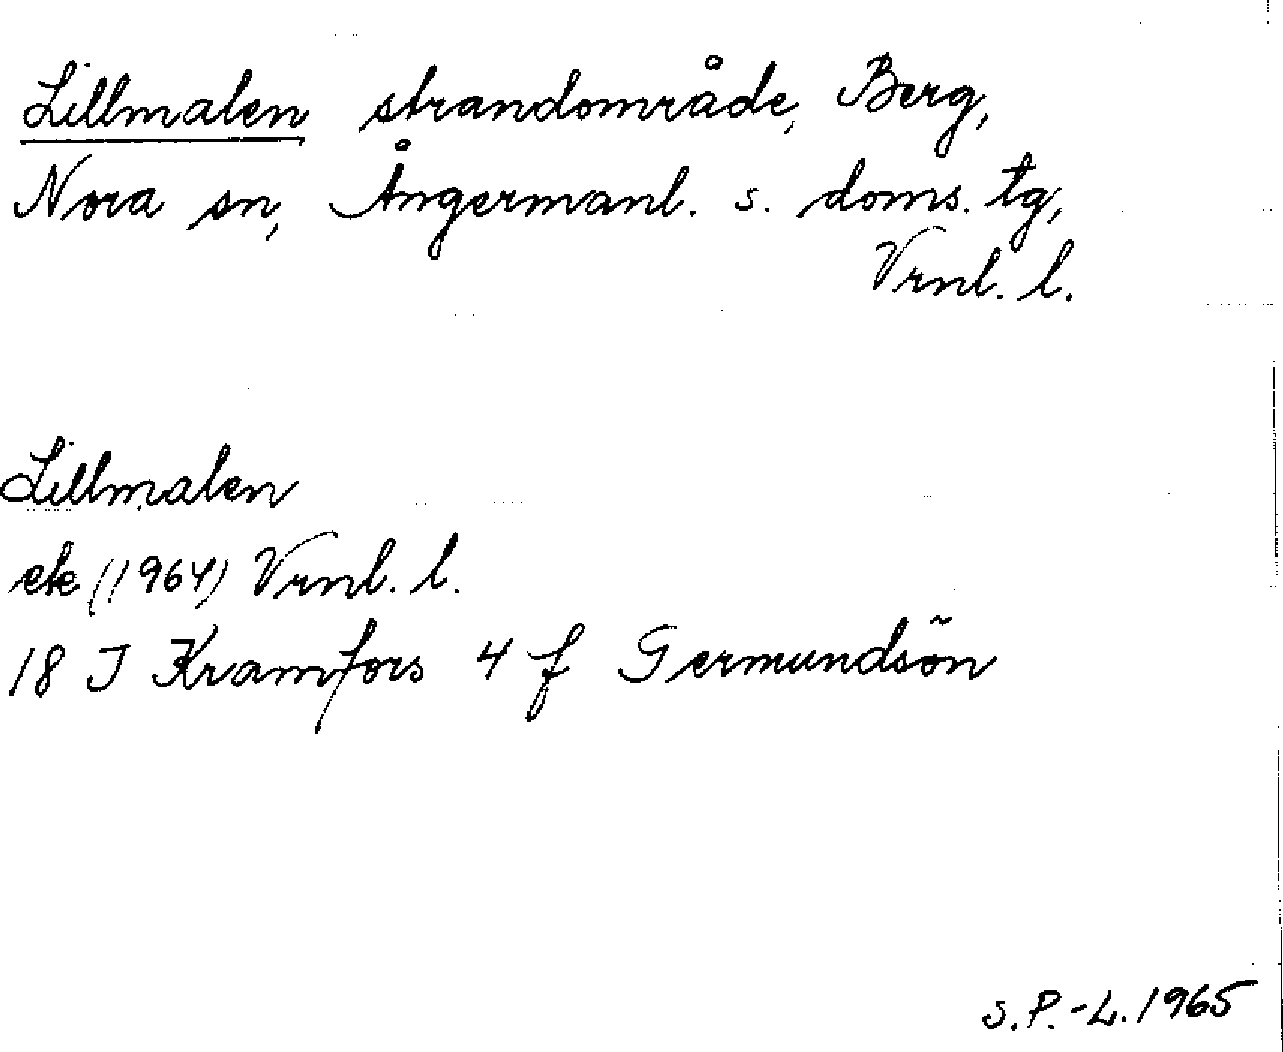 Lillmalen strandområde, Berg,
Nora sn, Ångermanl. s. doms. tg,
Vrnl. l.
Lillmalen
ek (1964) Vrnl. l.
18 J Kramfors 4 f Germundsön
S. P.-L. 1965